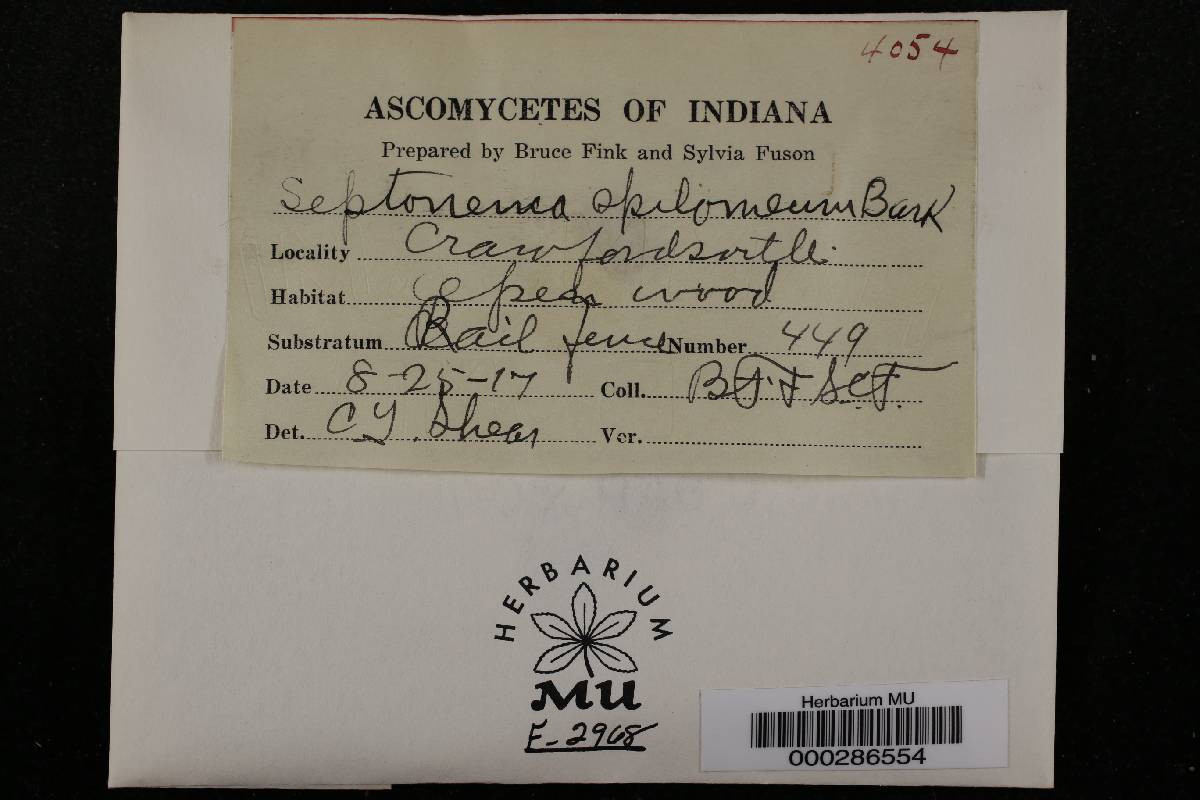 4054
ASCOMYCETES OF INDIANA
Prepared by Bruce Fink and Sylvia Fuson
Septonema spilomeum Berk
Locality Crawfordsville
Habitat Open wood
Substratum Rail fence Number 449
Date 8-25-17 Coll. B.F. + S.C.F.
Det. C. L. Shear Ver.
HERBARIUM
MU
F-2968
Herbarium MU
000286554